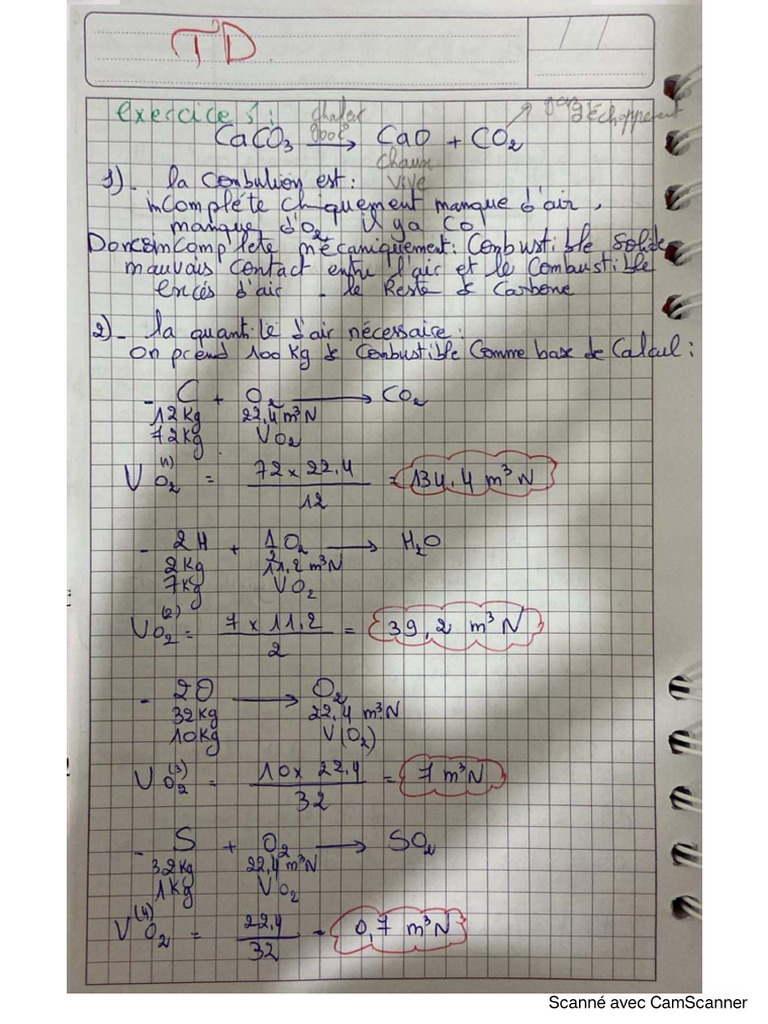 TD
exercice 1 : chaleur gaz
CaCO3 900°C → CaO + CO2 s'échappent
Chaux
1)_ la Conbution est : vive
incomplète chiquement manque d'air,
manque d'O2 il y a CO
Donc incomplete mécaniquement : Combustible Solide
mauvais Contact entre l'air et le Combustible
excés d'air _ le Reste de Carbone
2)_ la quantité d'air nécessaire :
On prend 100 Kg de Combustible Comme base de Calcul :
- C + O2 → CO2
12 Kg 22,4 m³N
72 Kg VO2
V(1)O2 = 72 x 22,4 / 12 = 134,4 m³N
- 2H + 1/2 O2 → H2O
2 Kg 11,2 m³N
7 Kg VO2
V(2)O2 = 7 x 11,2 / 2 = 39,2 m³N
- 2O → O2
32 Kg 22,4 m³N
10 Kg V(O2)
V(3)O2 = 10 x 22,4 / 32 = 7 m³N
- S + O2 → SO2
32 Kg 22,4 m³N
1 Kg VO2
V(4)O2 = 22,4 / 32 = 0,7 m³N
Scanné avec CamScanner